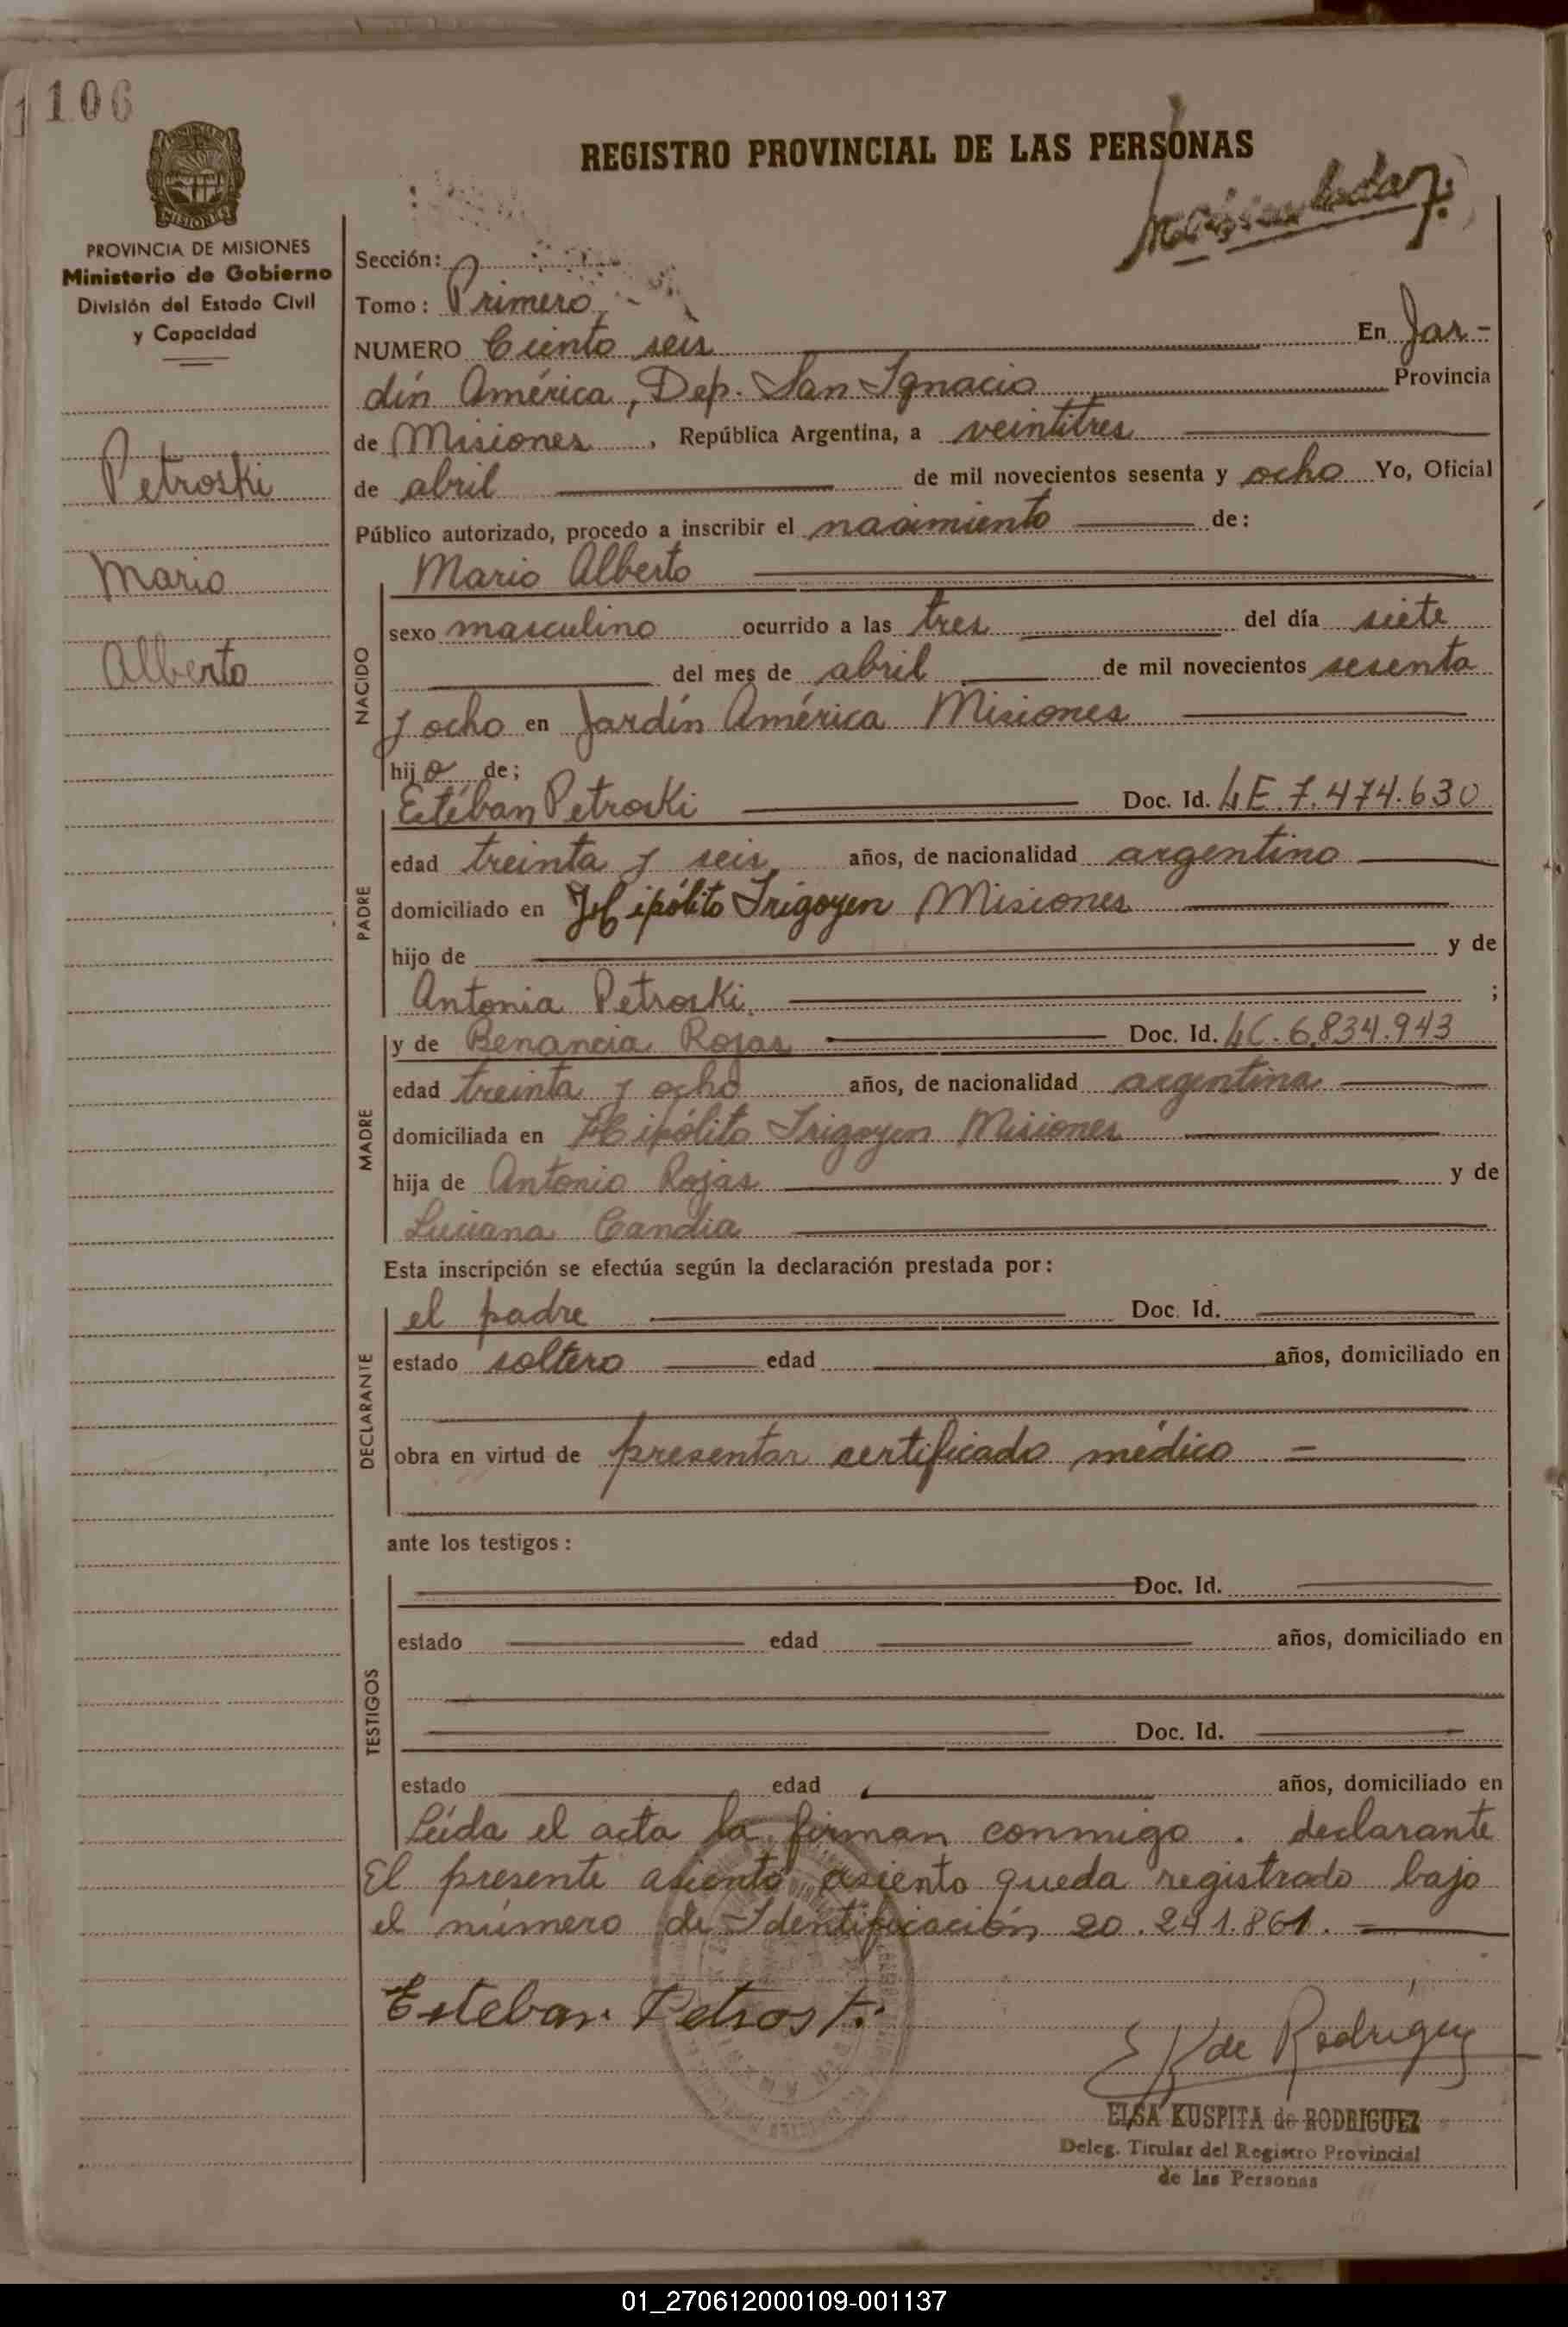 106
REGISTRO PROVINCIAL DE LAS PERSONAS
MISIONES
PROVINCIA DE MISIONES
Ministerio de Gobierno
División del Estado Civil
y Capacidad
Petroski
Mario
Alberto
Sección:
Tomo: Primero
NUMERO Ciento seis En Jar-
dín América, Dep. San Ignacio Provincia
de Misiones, República Argentina, a veintitres
de abril de mil novecientos sesenta y ocho Yo, Oficial
Público autorizado, procedo a inscribir el nacimiento de:
Mario Alberto
NACIDO
sexo masculino ocurrido a las tres del día siete
del mes de abril de mil novecientos sesenta
y ocho en Jardín América Misiones
hijo de;
PADRE
Estéban Petroski Doc. Id. LE 7.474.630
edad treinta y seis años, de nacionalidad argentino
domiciliado en Hipólito Irigoyen Misiones
hijo de y de
Antonia Petroski ;
MADRE
y de Benancia Rojas Doc. Id. LC. 6.834.943
edad treinta y ocho años, de nacionalidad argentina
domiciliada en Hipólito Irigoyen Misiones
hija de Antonio Rojas y de
Luciana Candia
Esta inscripción se efectúa según la declaración prestada por:
DECLARANTE
el padre Doc. Id.
estado soltero edad años, domiciliado en
obra en virtud de presentar certificado médico =
ante los testigos:
TESTIGOS
Doc. Id.
estado edad años, domiciliado en
Doc. Id.
estado edad años, domiciliado en
Leída el acta la firman conmigo. declarante
El presente asiento asiento queda registrado bajo
el número de Identificación 20.241.861. =
Esteban Petroski
E K de Rodríguez
ELSA KUSPITA de RODRIGUEZ
Deleg. Titular del Registro Provincial
de las Personas
01_270612000109-001137